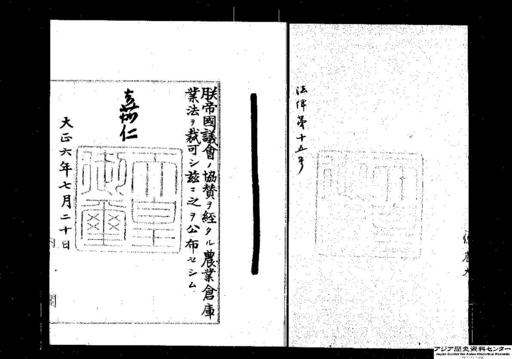 法律第十五号
朕帝國議會ノ協賛ヲ経タル農業倉庫
業法ヲ裁可シ茲ニ之ヲ公布セシム
嘉仁
天皇御璽
大正六年七月二十日
内閣
アジア歴史資料センター
Japan Center for Asian Historical Records